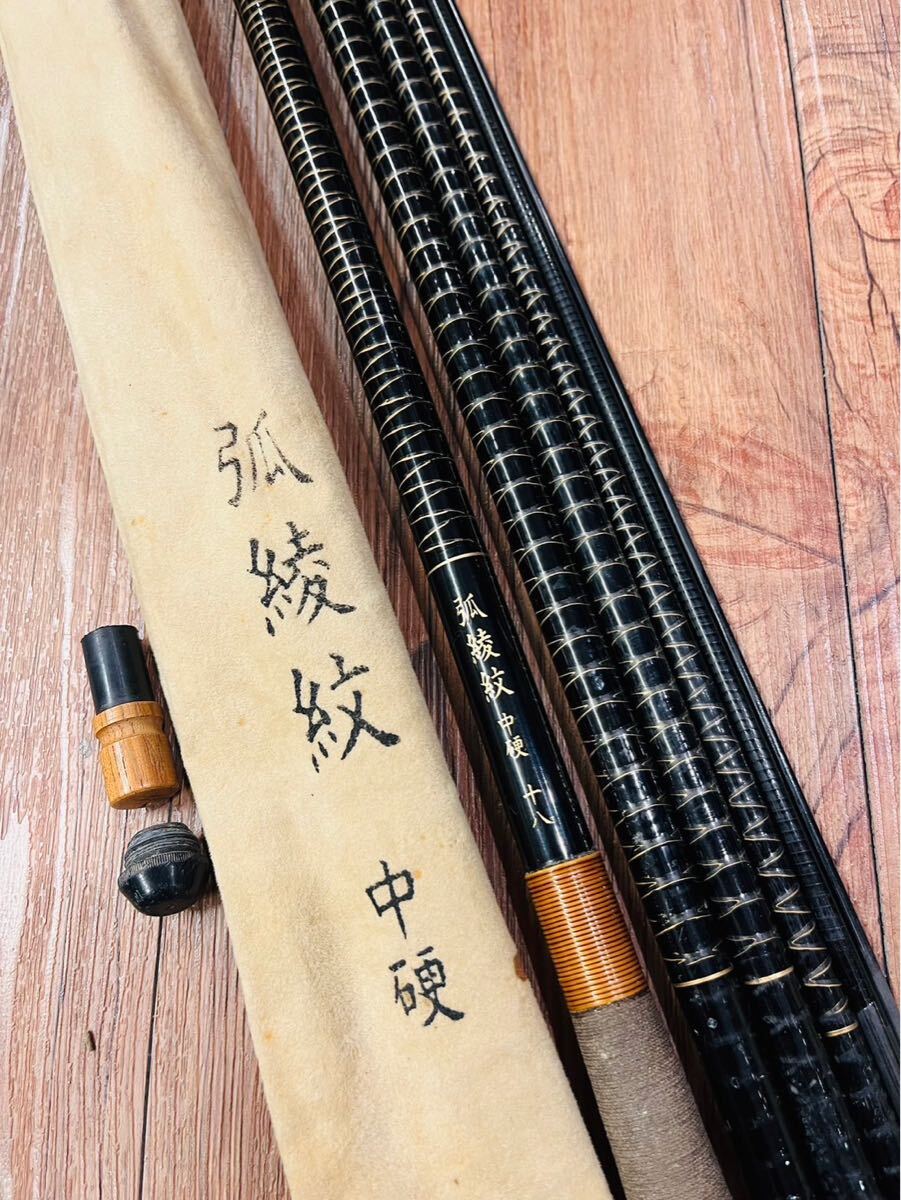 弧綾紋 中硬
弧綾紋 中硬 十八